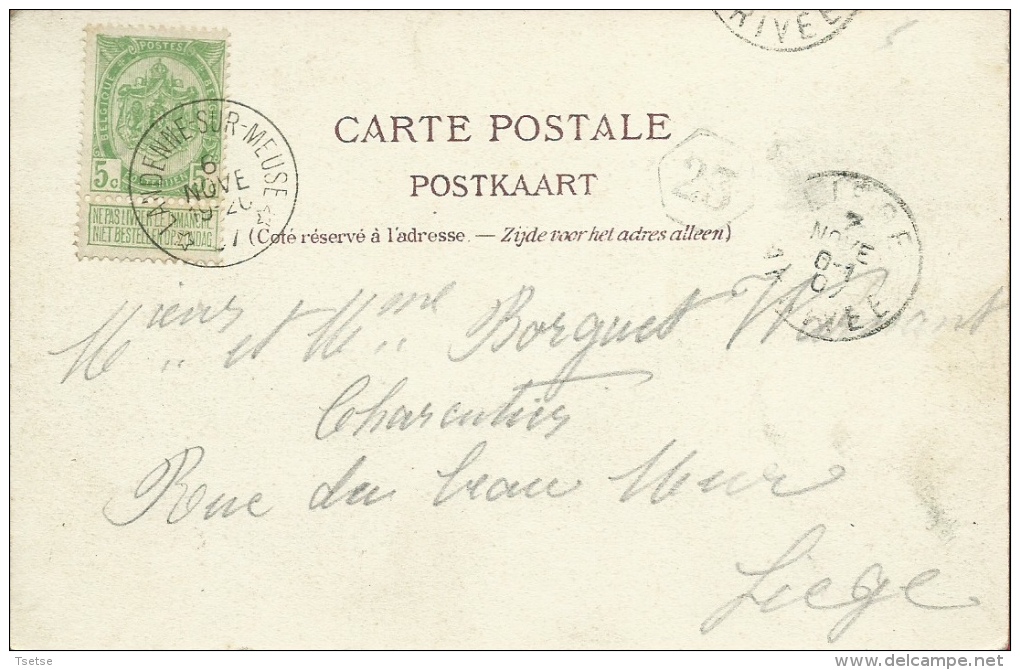 RIVEE
POSTES
BELGIQUE
5c 5c
NE PAS LIVRER LE DIMANCHE
NIET BESTELLEN OP ZONDAG
ANDENNE-SUR-MEUSE
6
NOVE
CARTE POSTALE
POSTKAART
25
(Coté réservé à l'adresse. — Zijde voor het adres alleen)
LIEGE
7
NOVE
Mieurs et Mme Borguet
Charcutiers
Rue du beau Mur
Liege
Tsetse
delcampe.net